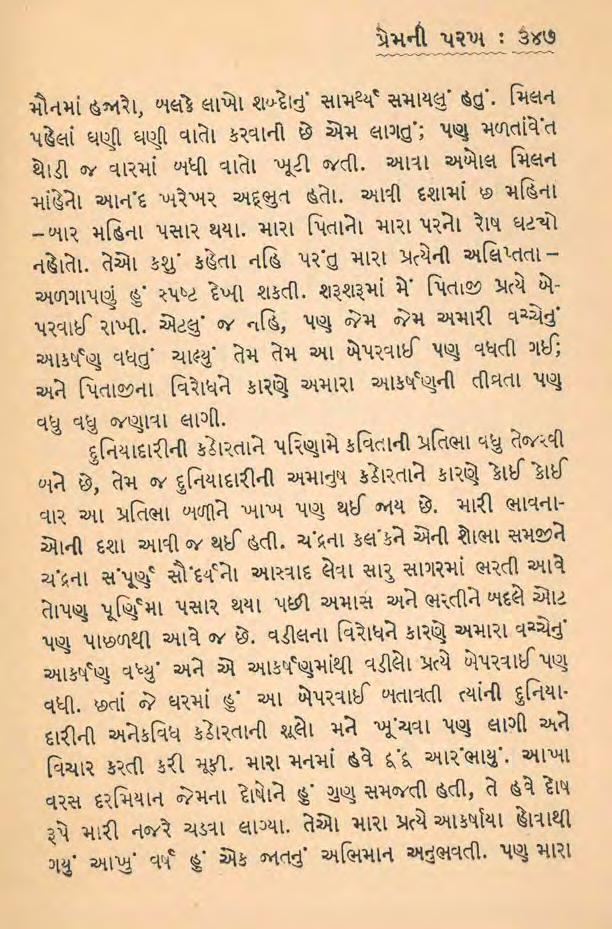 પ્રેમની પરખ : ૩૪૭
મૌનમાં હજારો, બલકે લાખો શબ્દોનું સામર્થ્ય સમાયલું હતું. મિલન
પહેલાં ઘણી ઘણી વાતો કરવાની છે એમ લાગતું; પણ મળતાંવેંત
થોડી જ વારમાં બધી વાતો ખૂટી જતી. આવા અબોલ મિલન
માંહેનો આનંદ ખરેખર અદ્ભુત હતો. આવી દશામાં છ મહિના
–બાર મહિના પસાર થયા. મારા પિતાનો મારા પરનો રોષ ઘટ્યો
નહોતો. તેઓ કશું કહેતા નહિ પરંતુ મારા પ્રત્યેની અલિપ્તતા–
અળગાપણું હું સ્પષ્ટ દેખી શકતી. શરૂશરૂમાં મેં પિતાજી પ્રત્યે બે-
પરવાઈ રાખી. એટલું જ નહિ, પણ જેમ જેમ અમારી વચ્ચેનું
આકર્ષણ વધતું ચાલ્યું તેમ તેમ આ બેપરવાઈ પણ વધતી ગઈ;
અને પિતાજીના વિરોધને કારણે અમારા આકર્ષણની તીવ્રતા પણ
વધુ વધુ જણાવા લાગી.
દુનિયાદારીની કઠોરતાને પરિણામે કવિતાની પ્રતિભા વધુ તેજસ્વી
બને છે, તેમ જ દુનિયાદારીની અમાનુષ કઠોરતાને કારણે કોઈ કોઈ
વાર આ પ્રતિભા બળીને ખાખ પણ થઈ જાય છે. મારી ભાવના-
ઓની દશા આવી જ થઈ હતી. ચંદ્રના કલંકને એની શોભા સમજીને
ચંદ્રના સંપૂર્ણ સૌંદર્યનો આસ્વાદ લેવા સારુ સાગરમાં ભરતી આવે
તોપણ પૂર્ણિમા પસાર થયા પછી અમાસ અને ભરતીને બદલે ઓટ
પણ પાછળથી આવે જ છે. વડીલના વિરોધને કારણે અમારા વચ્ચેનું
આકર્ષણ વધ્યું અને એ આકર્ષણમાંથી વડીલો પ્રત્યે બેપરવાઈ પણ
વધી. છતાં જે ઘરમાં હું આ બેપરવાઈ બતાવતી ત્યાંની દુનિયા-
દારીની અનેકવિધ કઠોરતાની શૂલો મને ખૂંચવા પણ લાગી અને
વિચાર કરતી કરી મૂકી. મારા મનમાં હવે દ્વંદ્વ આરંભાયું. આખા
વરસ દરમિયાન જેમના દોષોને હું ગુણ સમજતી હતી, તે હવે દોષ
રૂપે મારી નજરે ચડવા લાગ્યા. તેઓ મારા પ્રત્યે આકર્ષાયા હોવાથી
ગયું આખું વર્ષ હું એક જાતનું અભિમાન અનુભવતી. પણ મારા